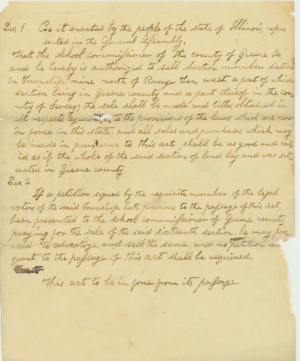 Sec. 1 Be it enacted by the people of the state of Illinois, repre
sented in the General Assembly,
That the school commissioner of the county of Greene be
and he hereby is authorized to sell section number sixteen
in township nine north of Range ten west a part of which
section being in Greene county and a part thereof in the coun
ty of Jersey; the sale shall be made and titles obtained in
all respects to the provisions of the laws which are now
in force in this state, and all sales and purchases which may
be made in pursuance to this act, shall be as good and val
id as if the whole of the said section of land lay and was sit
uated in Greene county
Sec. 2
If a petition signed by the requisite number of the legal
voters of the said township has, previous to the passage of this act
been presented to the school commissioner of Greene county
praying for the sale of the said sixteenth section, he may pro
ceed to advertise and sell the same, and no petition
quent to the passage of this act shall be required,
This act to be in force from its passage